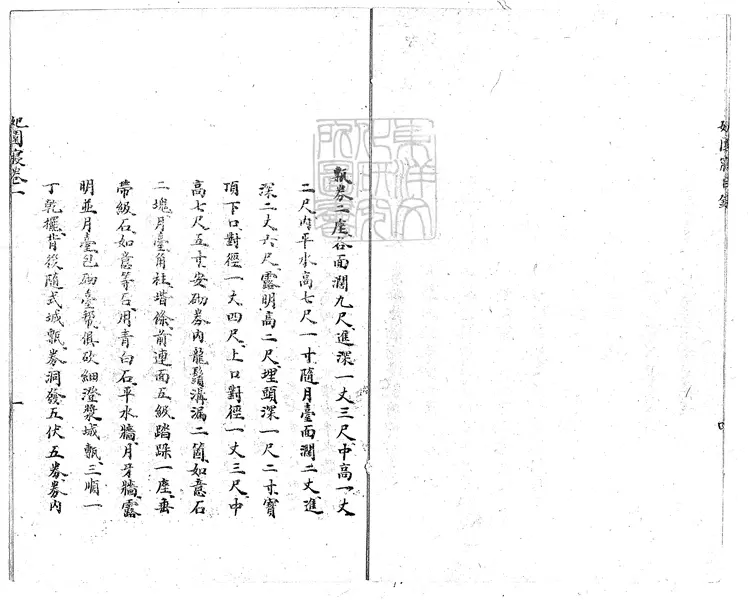 甎券二座各面濶九尺進深一丈三尺中高一丈
二尺内平水高七尺一寸隨月臺面濶二丈進
深二丈六尺露明高二尺埋頭深一尺二寸寳
頂下口對徑一丈四尺上口對徑一丈三尺中
高七尺五寸安砌券内龍鬚溝漏二箇如意石
二塊月臺角柱堦條前連面五級踏跺一座垂
帶級石如意等石用青白石平水牆月牙牆露
明並月臺包砌臺幫俱砍細澄漿城甎三順一
丁乾擺背後隨式城甎券洞發五伏五券券内
卷一
一
東洋文化研究所圖書